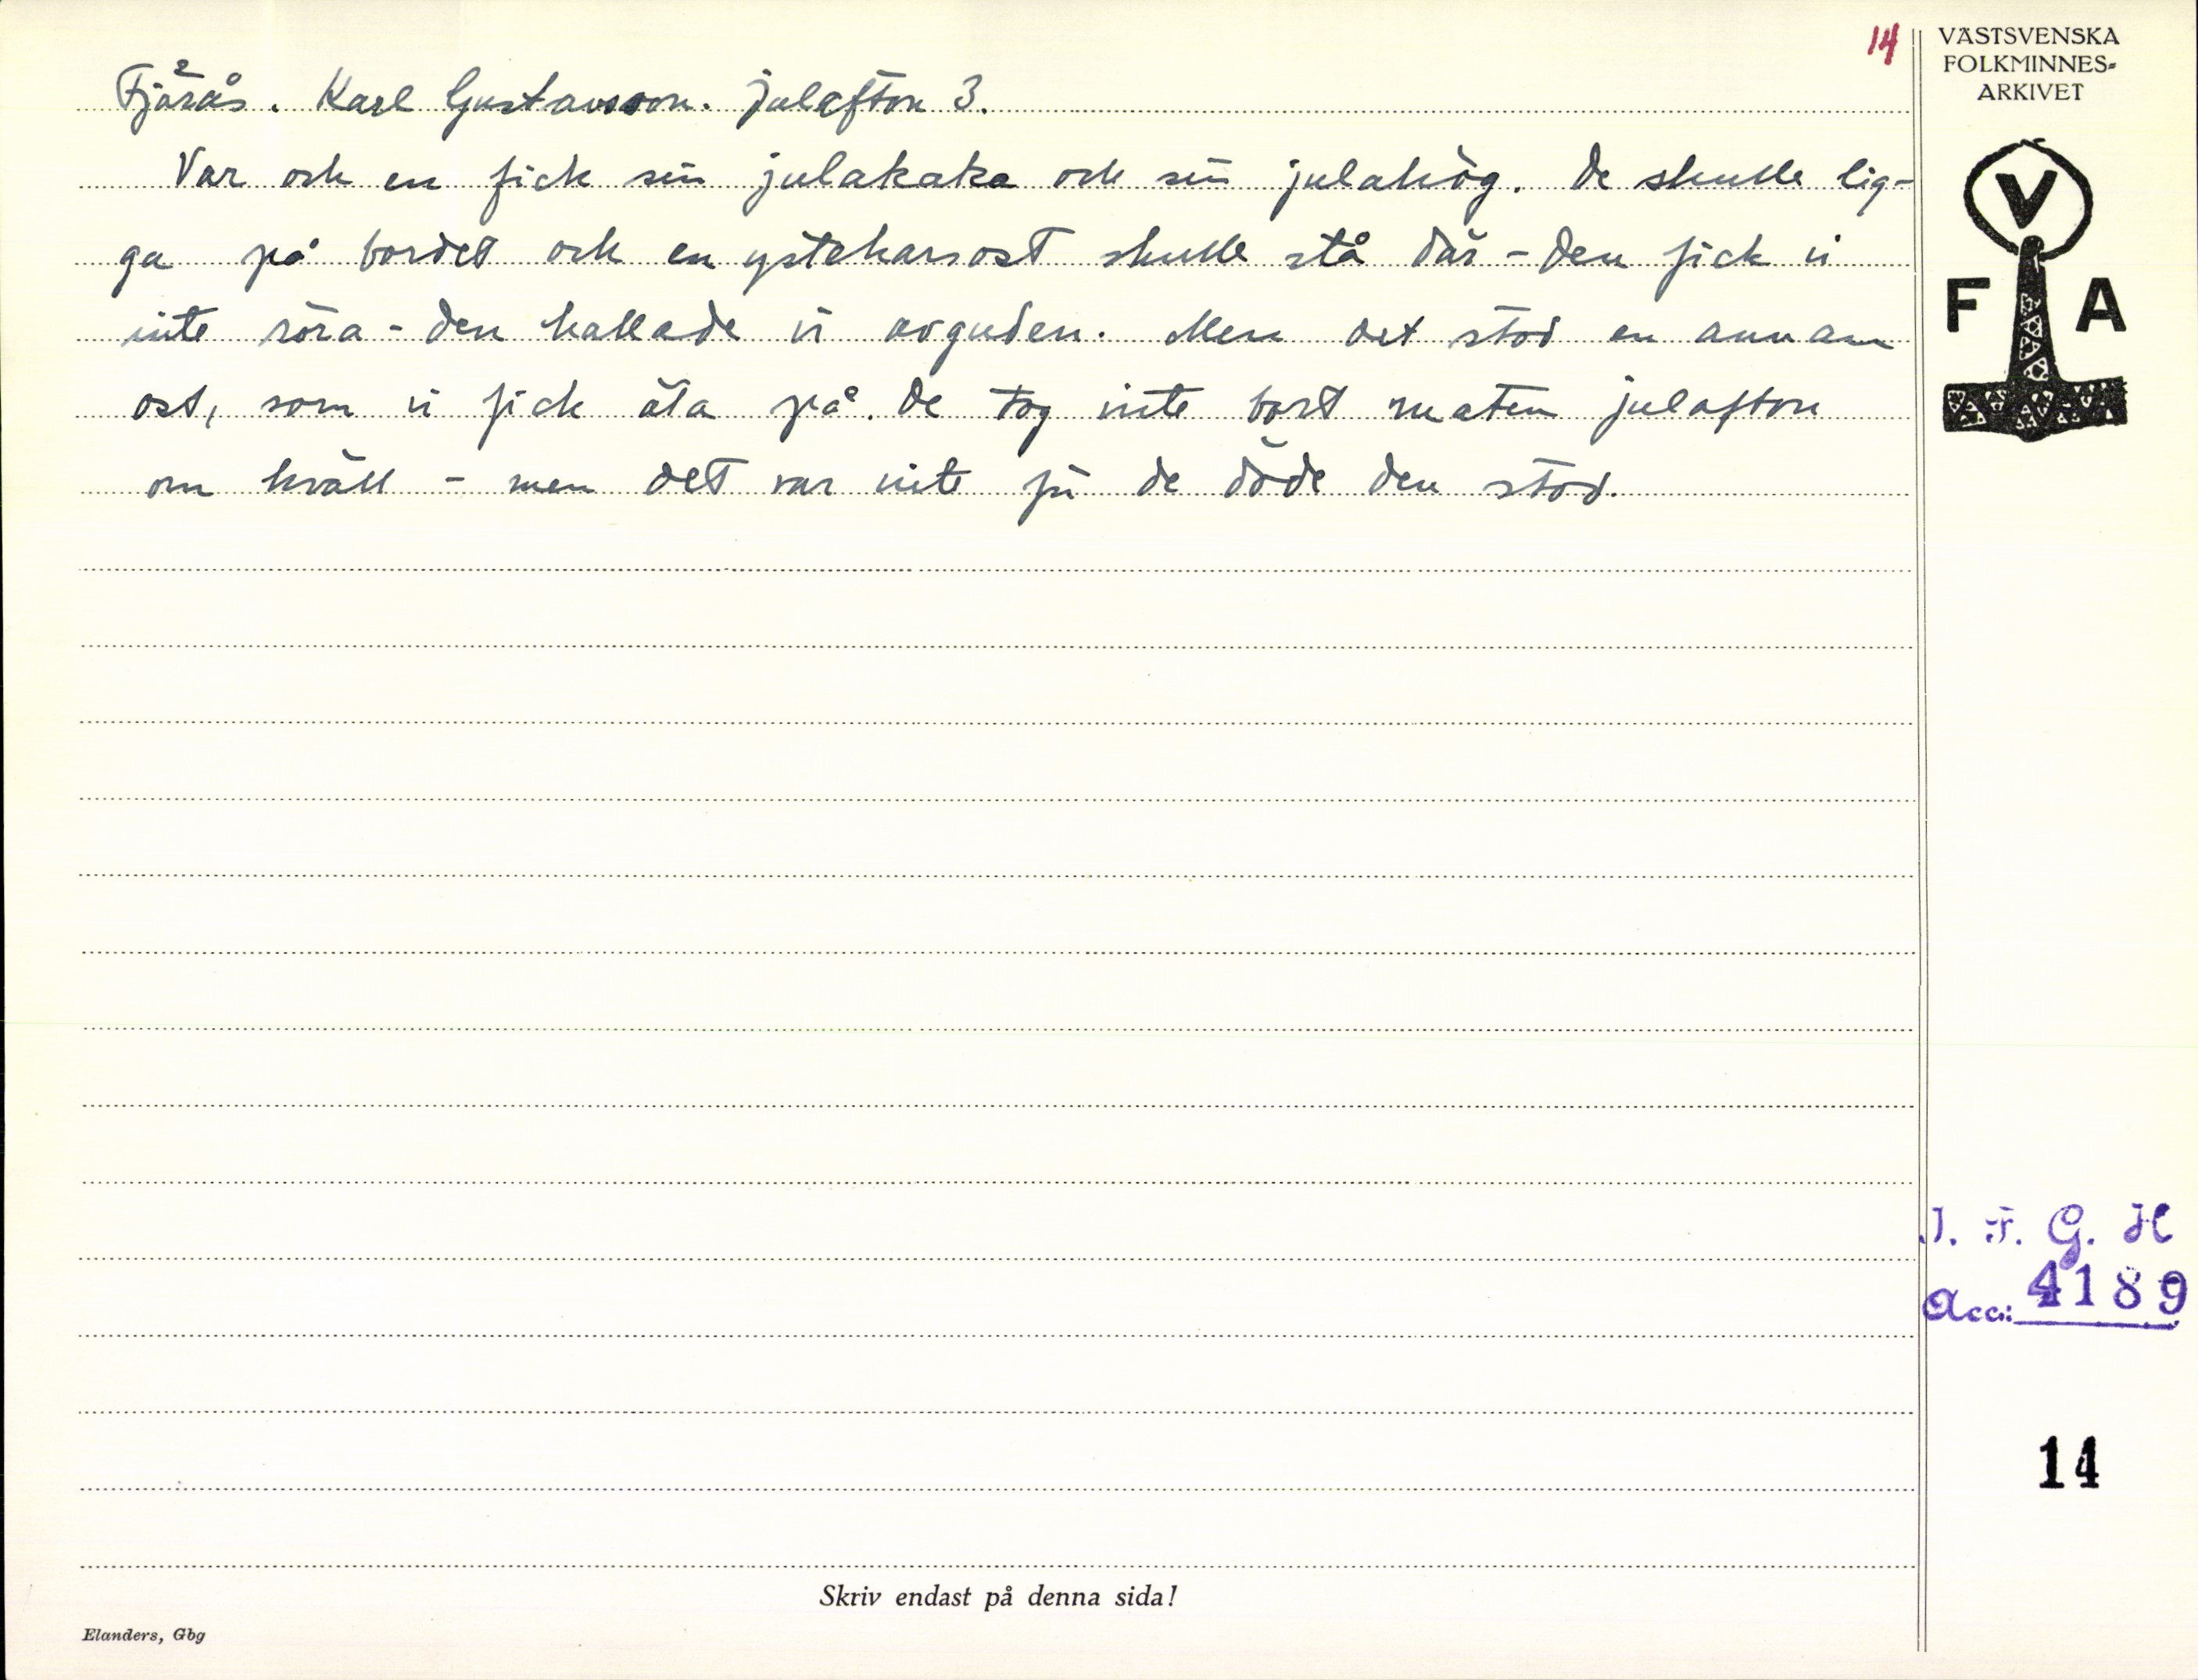 14
VÄSTSVENSKA
FOLKMINNES-
ARKIVET
Fjärås. Karl Gustavsson. Julafton 3.
Var och en fick sin julakaka och sin julahög. De skulle lig-
ga på bordet och en ystekarsost skulle stå där - den fick vi
inte röra - den kallade vi avguden. Men det stod en annan
ost, som vi fick äta på. De tog inte bort maten julafton
om kväll - men det var inte för de döde den stod.
V
F A
I. F. G. H
Acc: 4189
14
Skriv endast på denna sida!
Elanders, Gbg